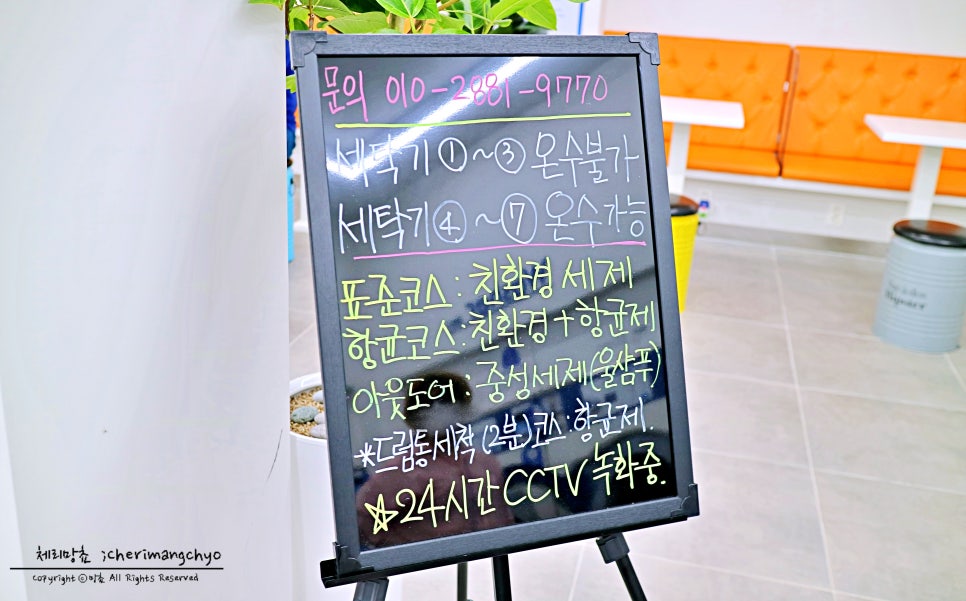 문의 010-2881-9770
세탁기 ①~③ 온수불가
세탁기 ④~⑦ 온수가능
표준코스 : 친환경 세제
항균코스 : 친환경 + 항균제
아웃도어 : 중성세제(울샴푸)
*드럼통세척 (2분)코스 : 항균제.
☆24시간 CCTV 녹화중.
체리망쵸 ;cherimangchyo
Copyright ⓒ망쵸 All Rights Reserved